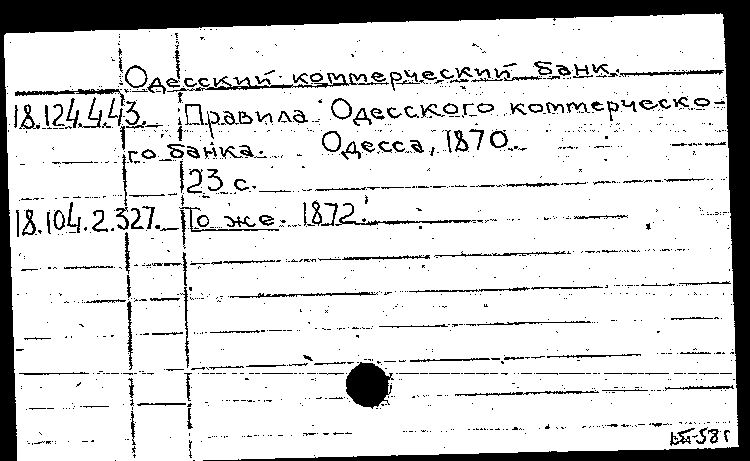 Одесский коммерческий банк.
18.124.4.43. Правила Одесского коммерческо-
го банка. Одесса, 1870.
23 с.
18.104.2.327. То же. 1872.
58 г